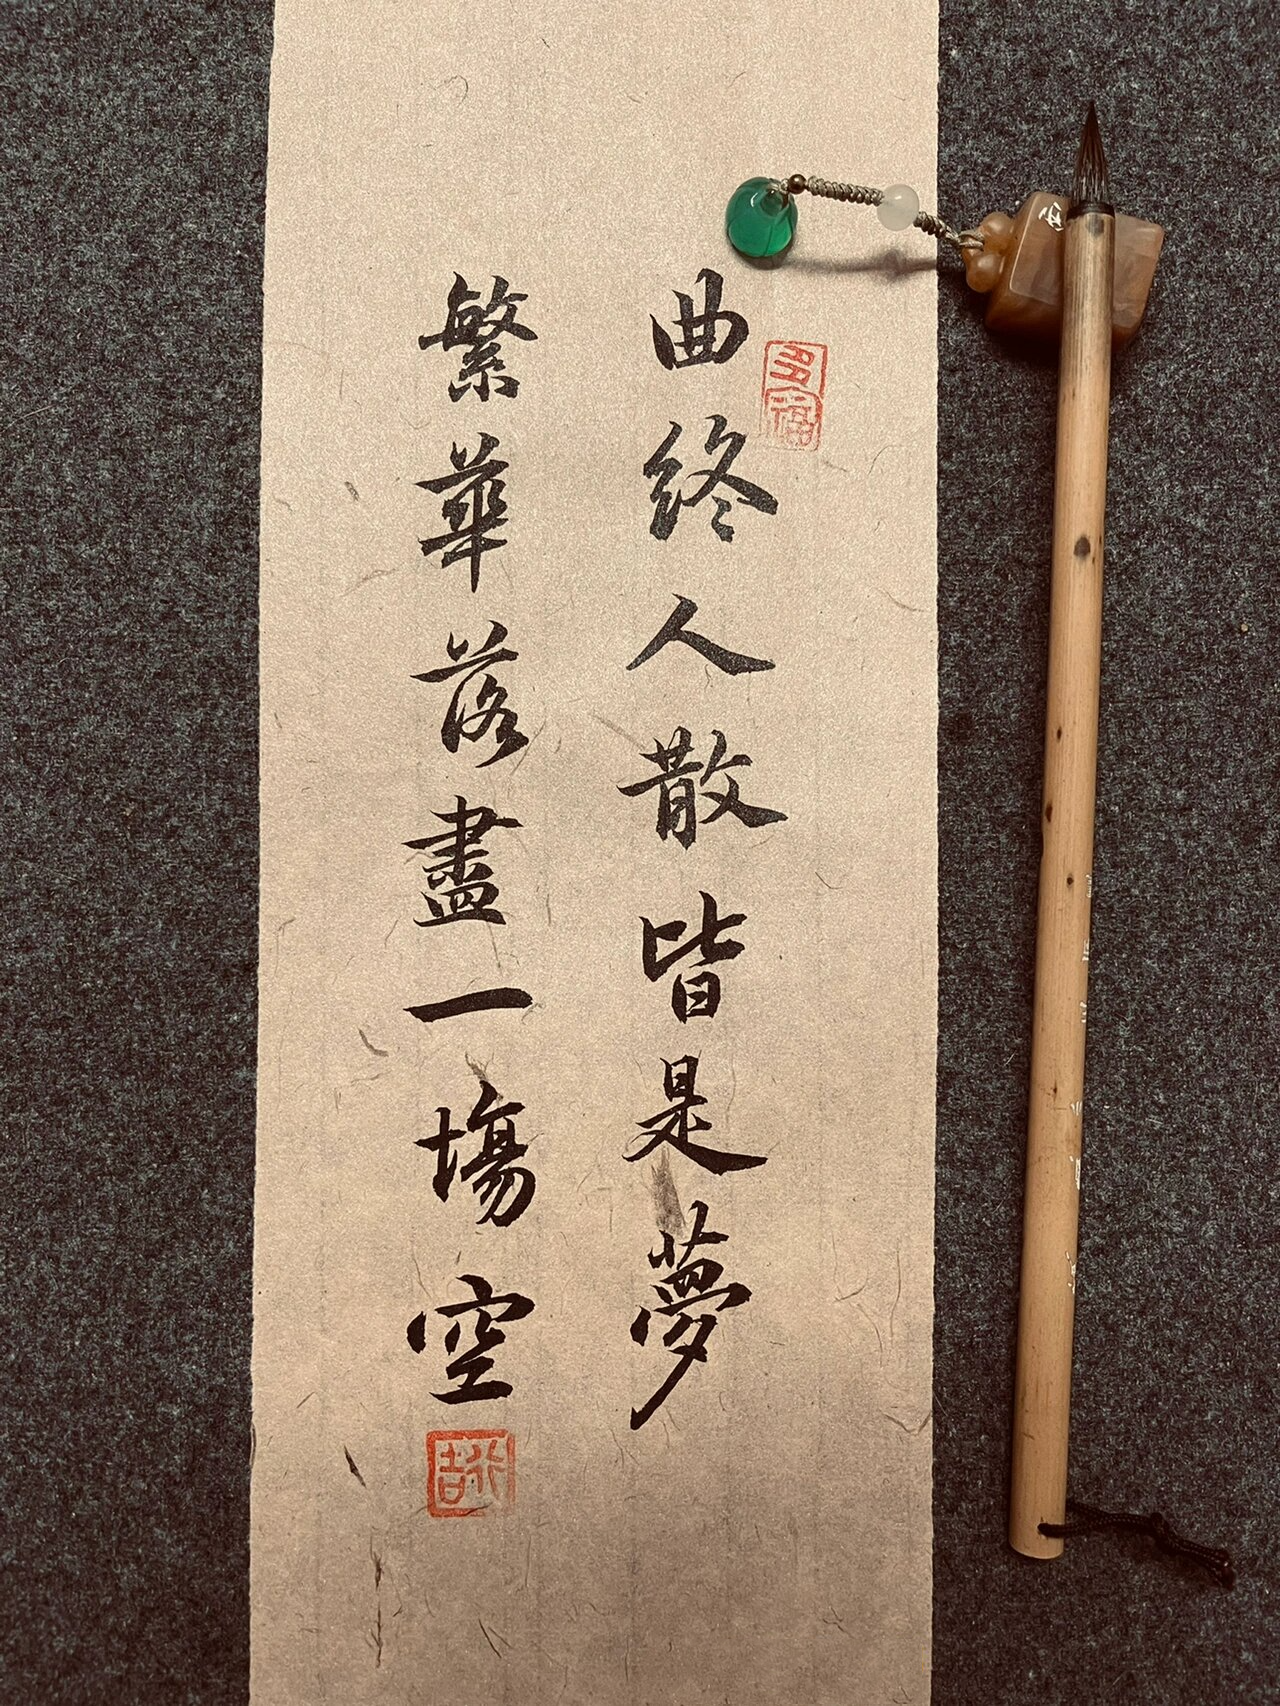 曲終人散皆是夢
繁華落盡一場空
多福